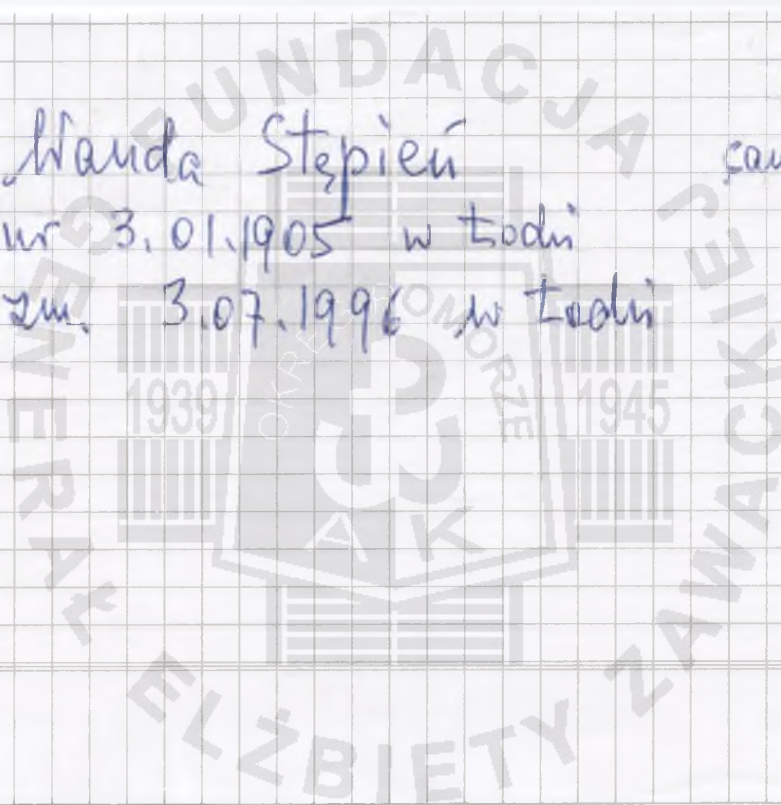 Wanda Stępień
ur 3.01.1905 w Łodzi
zm. 3.07.1996 w Łodzi
FUNDACJA GENERAŁ ELŻBIETY ZAWACKIEJ
OKRĘG POMORZE
1939
1945
AK